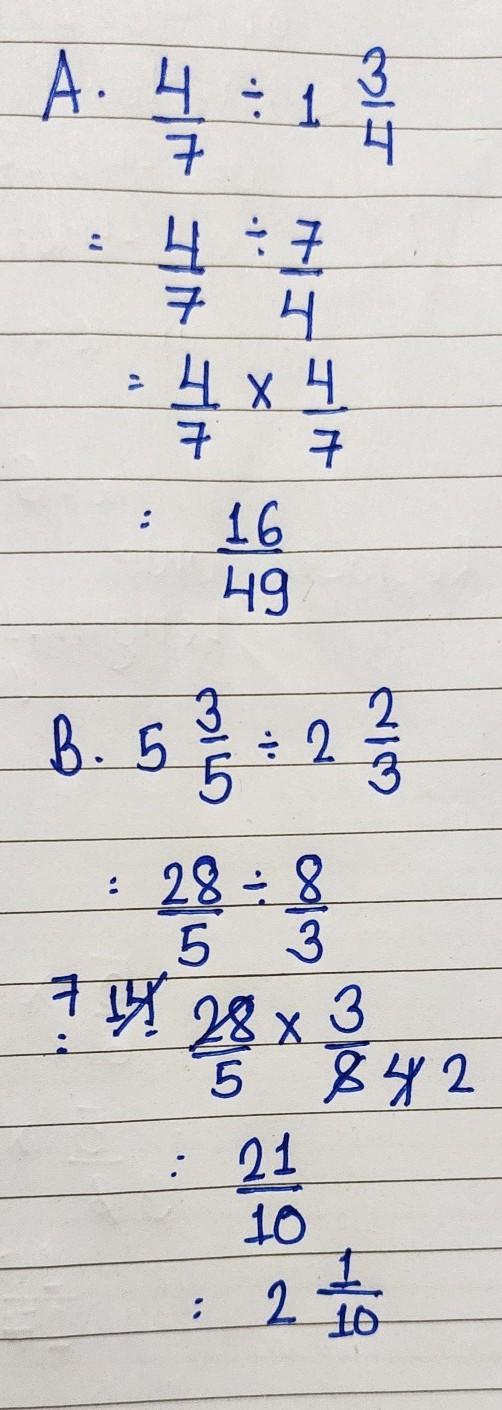 A. 4/7 ÷ 1 3/4
= 4/7 ÷ 7/4
= 4/7 x 4/7
= 16/49
B. 5 3/5 ÷ 2 2/3
= 28/5 ÷ 8/3
= 7 14 28/5 x 3/8 4 2
= 21/10
= 2 1/10